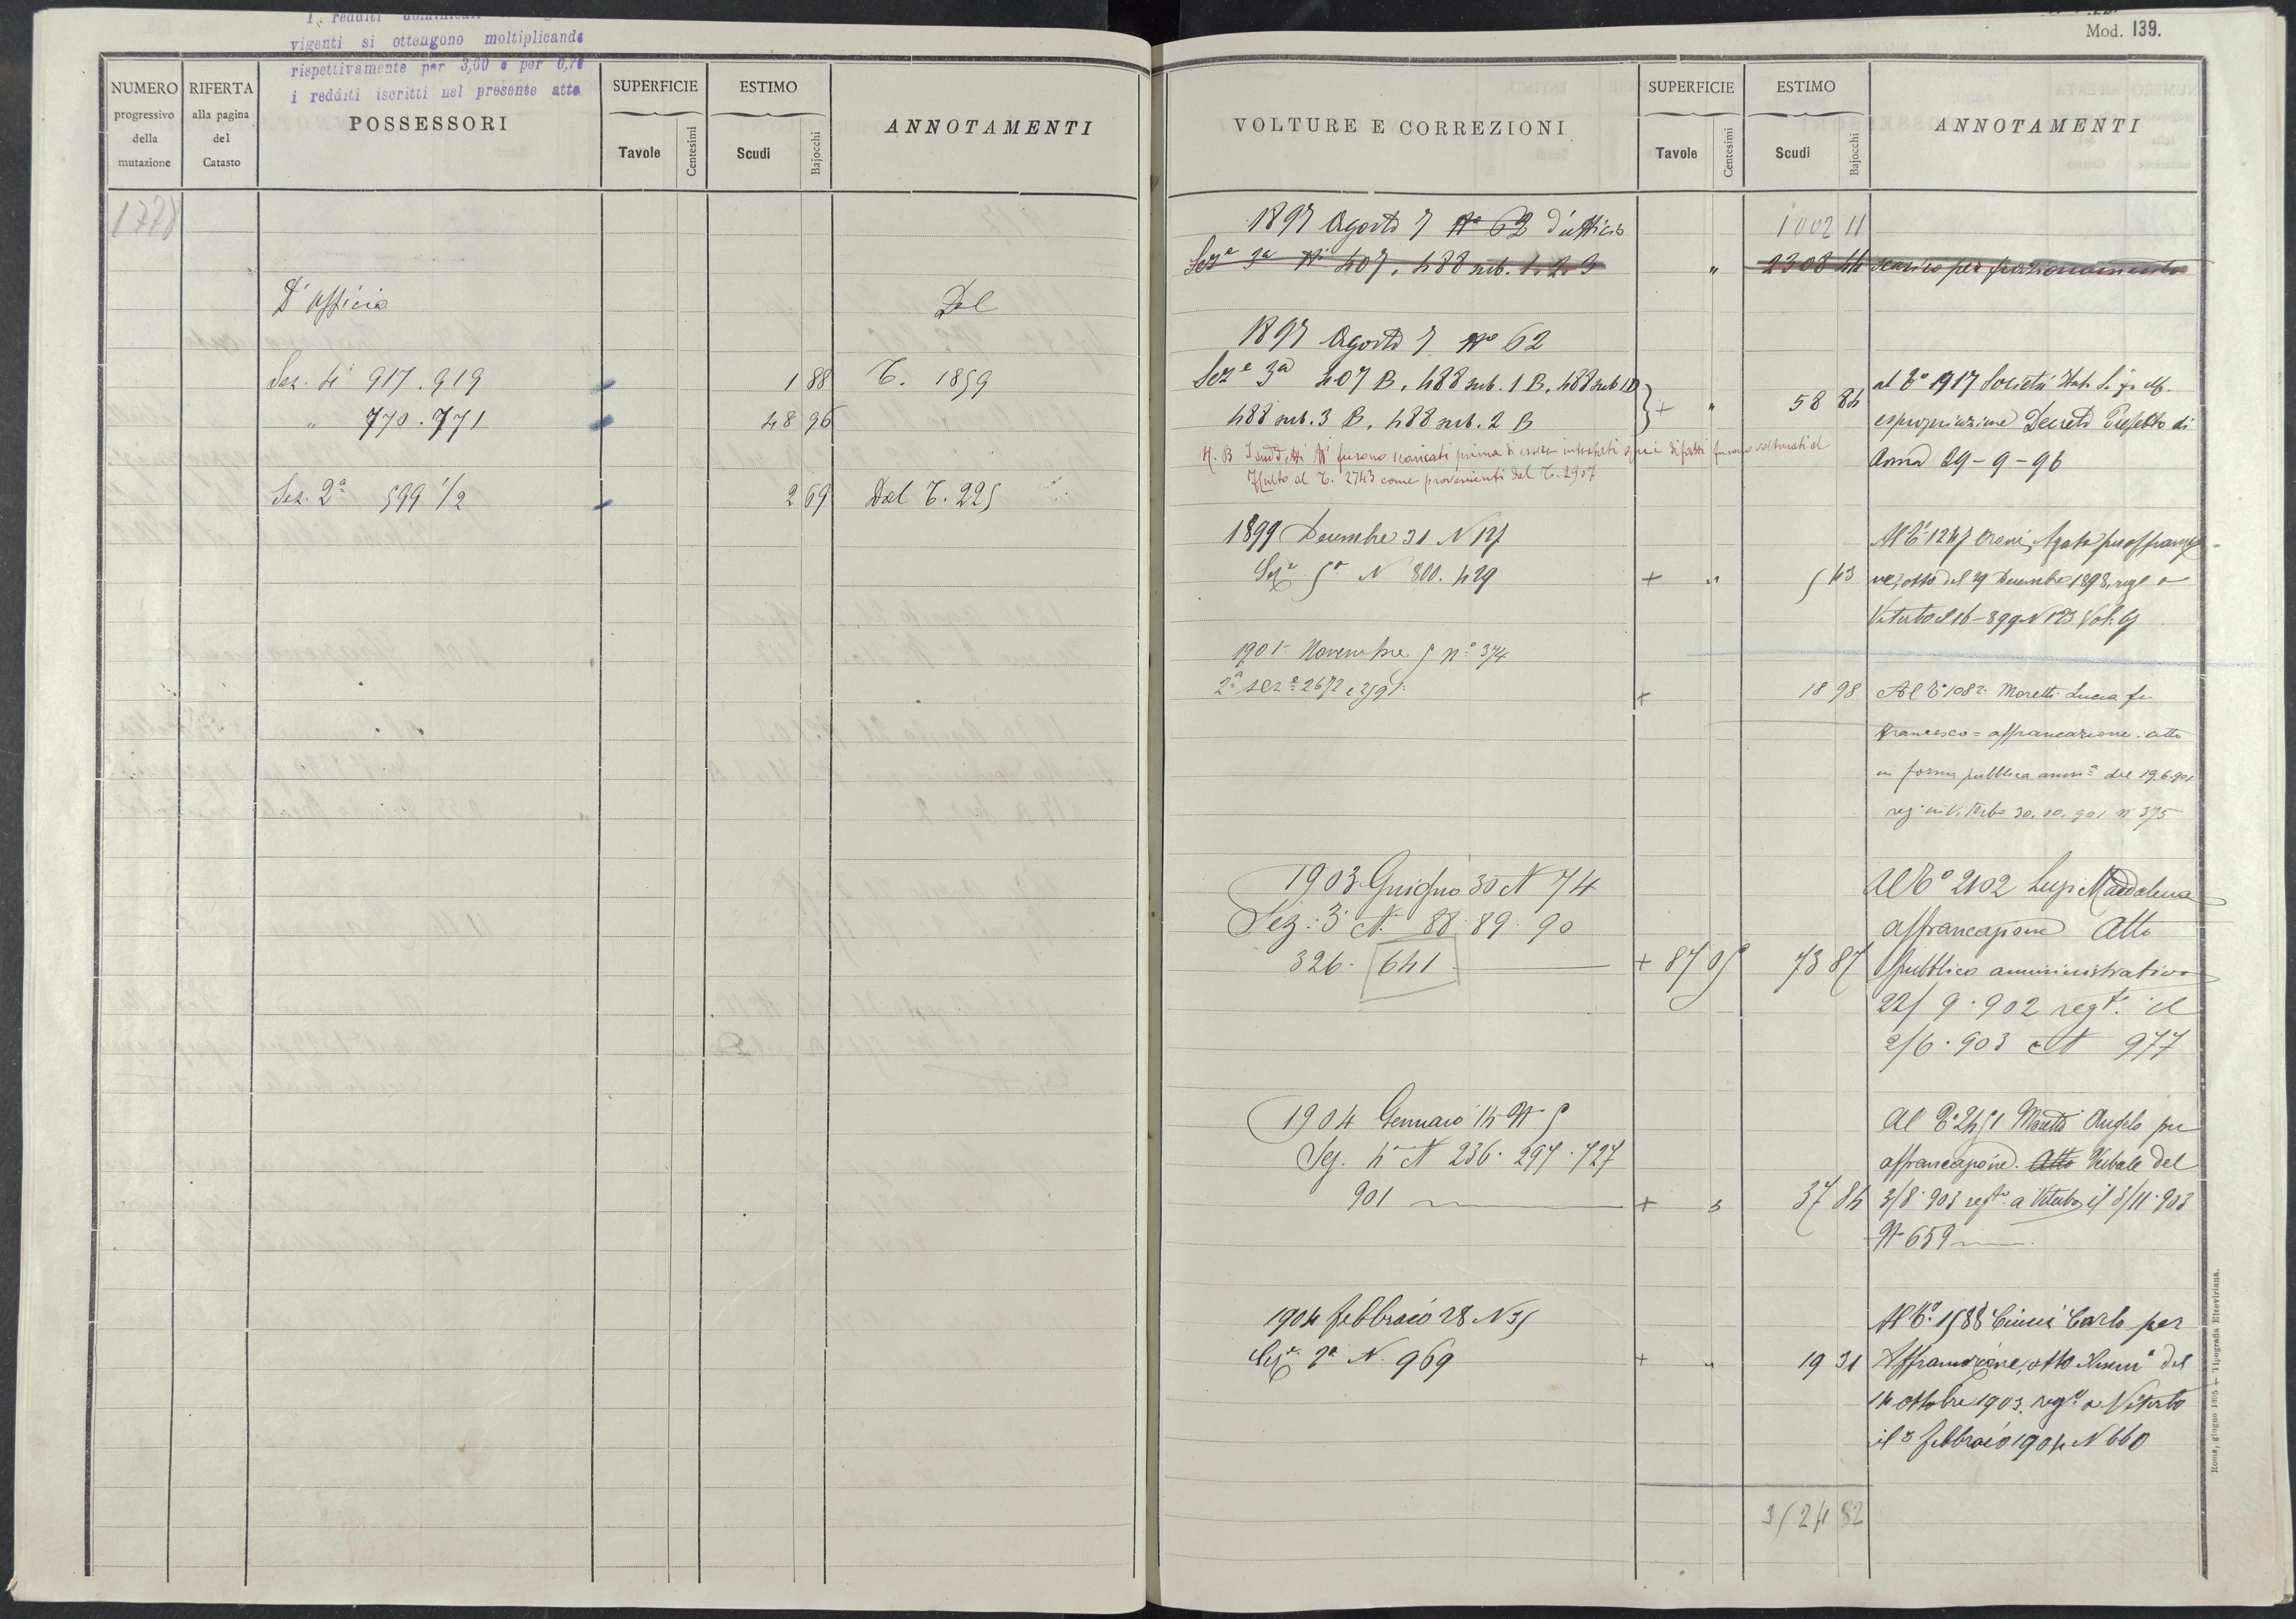 vigenti si ottengono moltiplicando
rispettivamente per 3,60 e per 0,7
i redditi iscritti nel presente atto
NUMERO
progressivo
della
mutazione
RIFERTA
alla pagina
del
Catasto
POSSESSORI
SUPERFICIE
Tavole
Centesimi
ESTIMO
Scudi
Bajocchi
ANNOTAMENTI
1778
D'Officio Dal
Sez. 4ª 917. 919 1 88 T. 1859
" 770. 771 48 96
Sez. 2ª 599 1/2 2 69 Dal T. 225
Mod. 139.
VOLTURE E CORREZIONI
SUPERFICIE
Tavole
Centesimi
ESTIMO
Scudi
Bajocchi
ANNOTAMENTI
1897 Agosto 7 Nº 62 d'ufficio 1002 11
Sezº 3ª Nⁱ 407, 488 sub. 1. 2. 3 " 2308 44 scarico per frazionamento
1897 Agosto 7 Nº 62
Sezº 3ª 407 B, 488 sub. 1 B, 488 sub 1D al Tº 1917 Società
488 sub. 3 B, 488 sub. 2 B + " 58 84 espropriazione Decreto Prefetto di
Roma 29-9-96
N.B. I suddetti Nⁱ furono scaricati prima di essere intestati qui difatti furono volturati al
al T. 2743 come provenienti dal T. 2907
1899 Decembre 31 N 127 Al Tº 1247 Agata
Sezº 5ª N 800. 429 + " 5 43 atto del 29 Decembre 1898, regº a
Viterbo N 123 Vol. 67
1901 Novembre 5 nº 374
2ª sezº 2672 e 2591 + 18 98 Al Tº 1082 Moretti Lucia fu
Francesco = affrancazione: atto
in forma pubblica ammª del 19.6.901
reg. in Viterbo 30.10.901 nº 375
1903 Giugno 30 N 74 Al Tº 2102 Lupi Maddalena
Sez: 3ª N. 88. 89. 90 affrancazione Atto
326. 641 + 87 05 73 87 pubblico amministrativo
22/9.902 regtº il
2/6.903 N 977
1904 Gennaio 14 N 5 Al Tº 2451 Moretti Angelo per
Sez. 4ª N 236. 297. 727 affrancazione. Atto Verbale del
901 + " 37 84 3/8.903 regtº a Viterbo il 3/11.903
N 659
1904 febbraio 28 N 35 Al Tº. 1588 Carlo per
Sezº 2ª N. 969 + " 19 31 Affrancazione, atto Ammº del
14 ottobre 1903. regº a Viterbo
il 3 febbraio 1904 N 660
3524 82
Roma, giugno 1895 — Tipografia Elzeviriana.